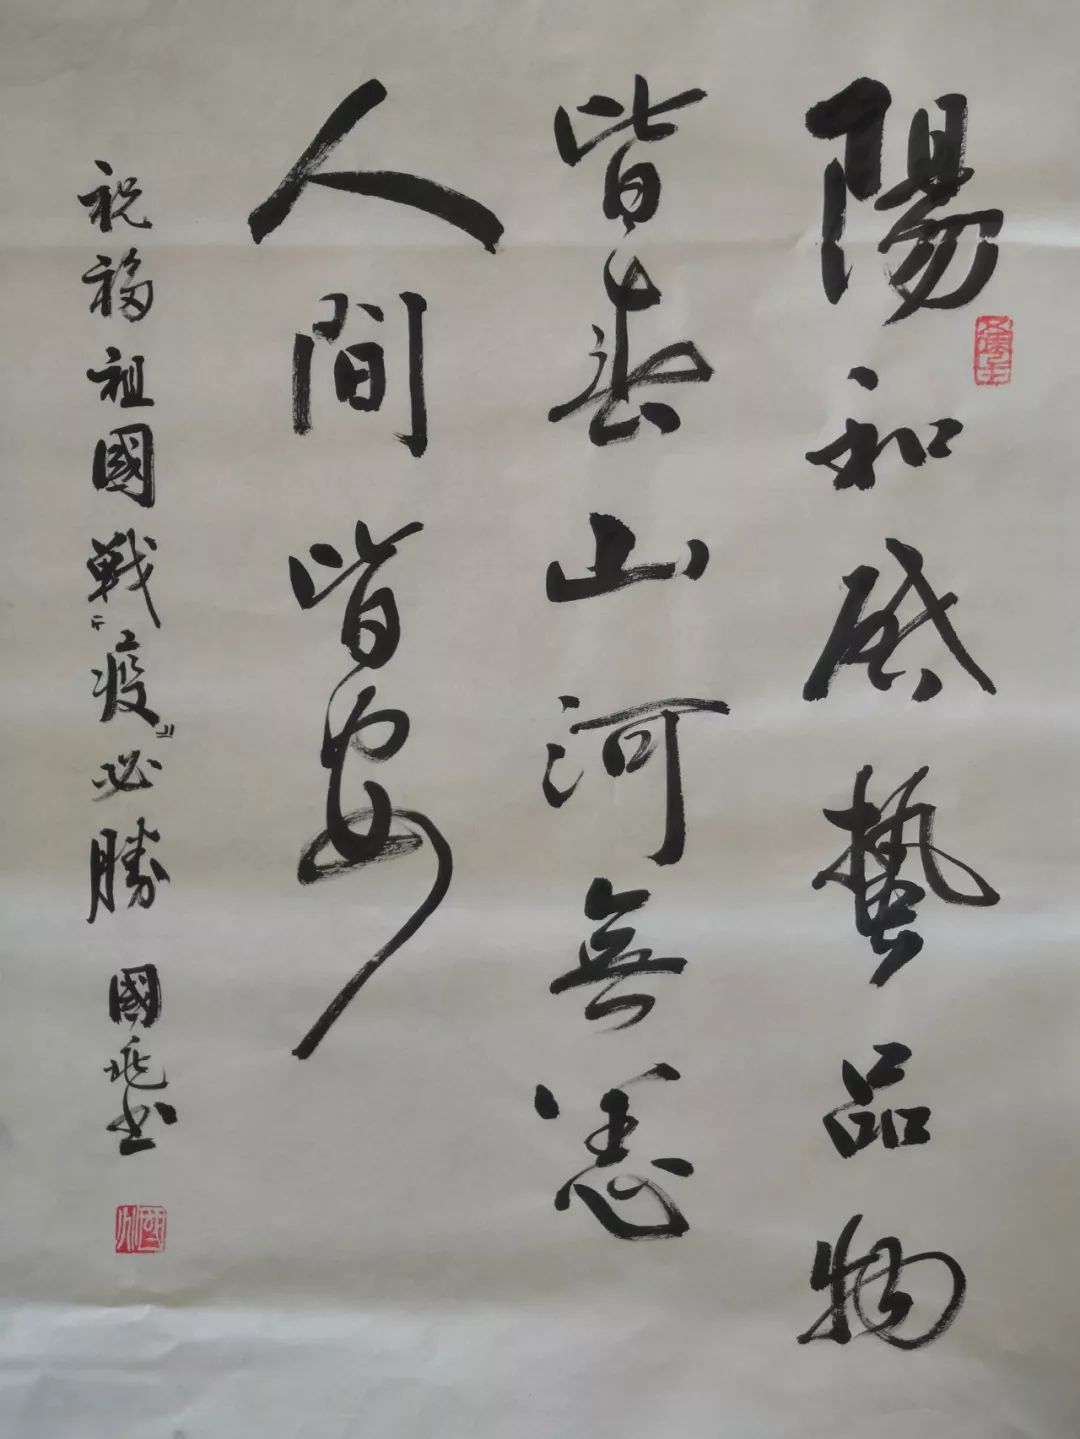 陽和啟蟄品物
皆春山河無恙
人間皆安
祝福祖國戰“疫”必勝
國兆書